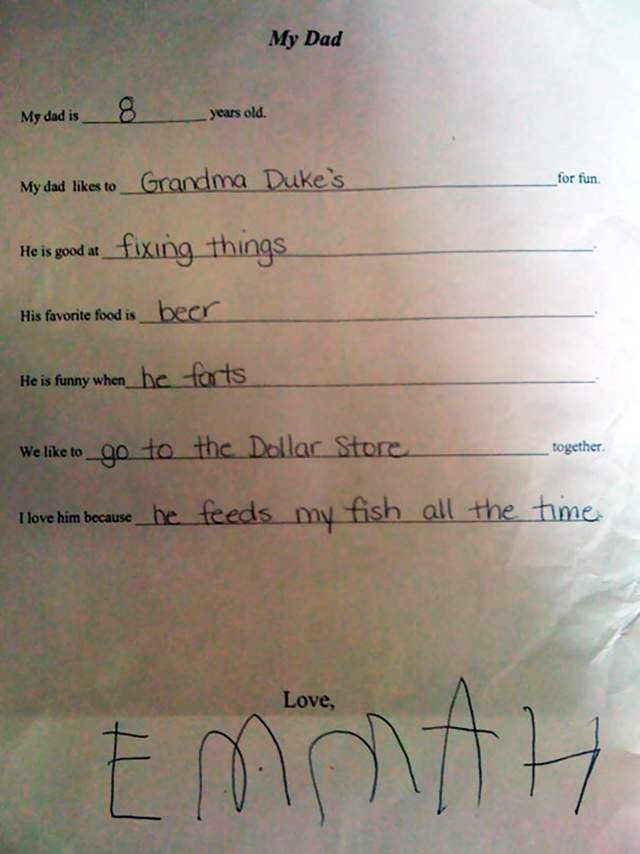 My Dad
My dad is 8 years old.
My dad likes to Grandma Duke's for fun.
He is good at fixing things.
His favorite food is beer.
He is funny when he farts.
We like to go to the Dollar Store together.
I love him because he feeds my fish all the time.
Love,
EMMAH